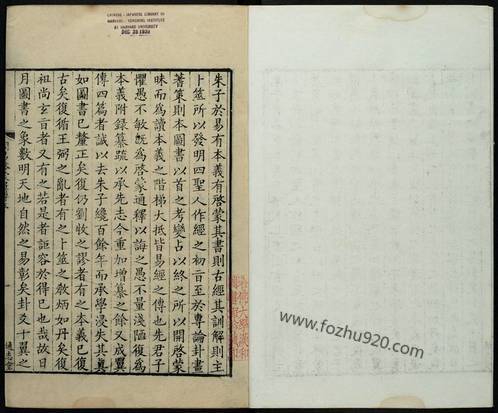 CHINESE - JAPANESE LIBRARY OF
HARVARD - YENCHING INSTITUTE
AT HARVARD UNIVERSITY
朱子於易有本義有啓蒙其書則古經其訓解則主
卜筮所以發明四聖人作經之初旨至於專論卦畫
蓍策則本圖書以首之考變占以終之所以開啓蒙
昧而為讀本義之階梯大抵皆易經之傳也先君子
懼愚不敏既為啓蒙通釋以誨之愚不量淺陋復為
本義附録纂疏以承先志今重加增纂之餘又成翼
傳四篇者誠以去朱子纔百餘年而承學浸失其真
如圖書已釐正矣復仍劉牧之謬者有之本義已復
古矣復循王弼之亂者有之卜筮之敎炳如丹矣復
祖尚玄㫖者又有之若是者詎容於得已也哉故日
月圖書之象數明天地自然之易彰矣卦爻十翼之
通志堂
www.fozhu920.com